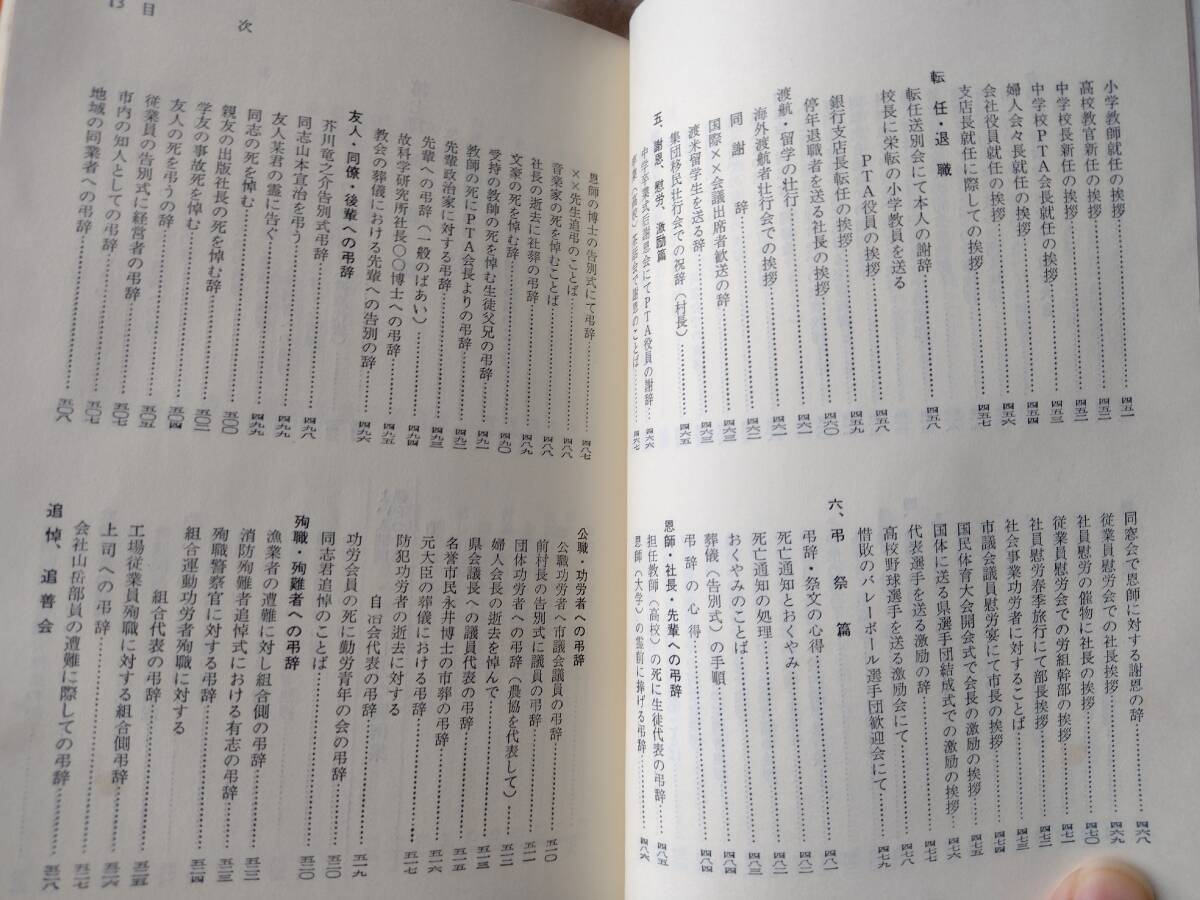 小学教師就任の挨拶……四五一
高校教官新任の挨拶……四五二
中学校長新任の挨拶……四五二
中学校PTA会長就任の挨拶……四五四
婦人会々長就任の挨拶……四五四
会社役員就任の挨拶……四五六
支店長就任に際しての挨拶……四五七
転任・退職
転任送別会にて本人の謝辞……四五八
校長に栄転の小学教員を送る
PTA役員の挨拶……四五八
銀行支店長転任の挨拶……四五九
停年退職者を送る社長の挨拶……四六〇
渡航・留学の壮行……四六一
海外渡航者壮行会での挨拶……四六一
同謝辞……四六二
国際××会議出席者歓送の辞……四六三
渡米留学生を送る辞……四六三
集団移民壮行会での祝辞(村長)……四六五
五、謝恩、慰労、激励篇
中学卒業式后謝恩会にてPTA役員の謝辞……四六六
卒業(高校)茶話会で謝恩のことば……四六七
同窓会で恩師に対する謝恩の辞……四六八
従業員慰労会での社長挨拶……四六九
社員慰労の催物に社長の挨拶……四七〇
従業員慰労会での労組幹部の挨拶……四七一
社員慰労春季旅行にて部長挨拶……四七二
社会事業功労者に対することば……四七三
市議会議員慰労宴にて市長の挨拶……四七四
国民体育大会開会式で会長の激励の挨拶……四七五
国体に送る県選手団結成式での激励の挨拶……四七六
代表選手を送る激励の辞……四七七
高校野球選手を送る激励会にて……四七八
惜敗のバレーボール選手団歓迎会にて……四七九
六、弔祭篇
弔辞・祭文の心得……四八一
死亡通知とおくやみ……四八二
死亡通知の処理……四八二
おくやみのことば……四八三
葬儀(告別式)の手順……四八四
弔辞の心得……四八四
恩師・社長・先輩への弔辞
担任教師(高校)の死に生徒代表の弔辞……四八五
恩師(大学)の霊前に捧げる弔辞……四八六
目次 13
恩師の博士の告別式にて弔辞……四八七
××先生追弔のことば……四八八
音楽家の死を悼むことば……四八八
社長の逝去に社葬の弔辞……四八九
文豪の死を悼む辞……四九〇
受持の教師の死を悼む生徒父兄の弔辞……四九一
教師の死にPTA会長よりの弔辞……四九二
先輩政治家に対する弔辞……四九三
先輩への弔辞(一般のばあい)……四九四
故科学研究所社長〇〇博士への弔辞……四九五
教会の葬儀における先輩への告別の辞……四九六
友人・同僚・後輩への弔辞
芥川竜之介告別式弔辞……四九八
同志山本宣治を弔う……四九九
友人某君の霊に告ぐ……四九九
同志の死を悼む……五〇〇
親友の出版社長の死を悼む弔辞……五〇二
学友の事故死を悼む……五〇四
友人の死を弔うの辞……五〇五
従業員の告別式に経営者の弔辞……五〇七
市内の知人としての弔辞……五〇七
地域の同業者への弔辞……五〇八
公職・功労者への弔辞
公職功労者へ市議会議員の弔辞……五一〇
前村長の告別式に議員の弔辞……五一一
団体功労者への弔辞(農協を代表して)……五一二
婦人会長の逝去を悼んで……五一三
県会議長への議員代表の弔辞……五一四
名誉市民永井博士の市葬の弔辞……五一五
元大臣の葬儀における弔辞……五一六
防犯功労者の逝去に対する
自治会代表の弔辞……五一七
功労会員の死に勤労青年の会の弔辞……五一九
同志君追悼のことば……五二〇
殉職・殉難者への弔辞
漁業者の遭難に対し組合側の弔辞……五二二
消防殉難者追悼式における有志の弔辞……五二三
殉職警察官に対する弔辞……五二四
組合運動功労者殉職に対する
組合代表の弔辞
工場従業員殉職に対する組合側弔辞……五二五
上司への弔辞……五二六
会社山岳部員の遭難に際しての弔辞……五二七
追悼、追善会……五二八